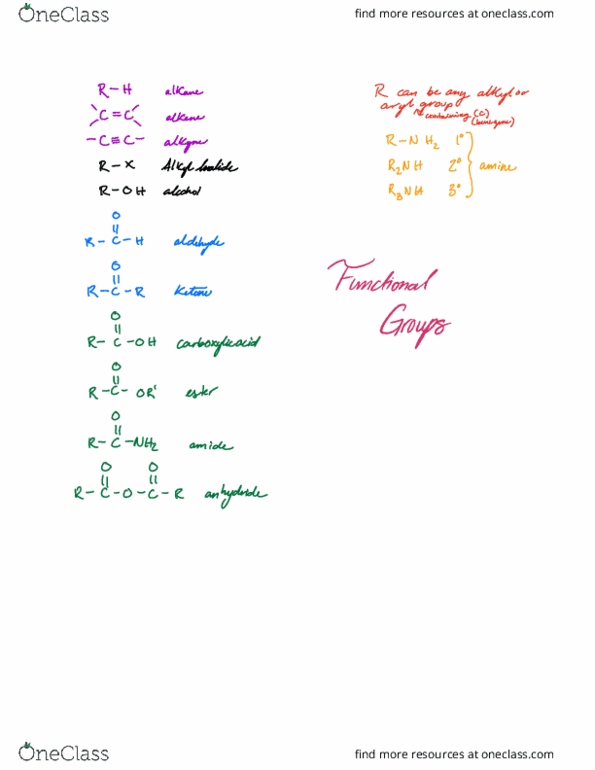 OneClass
find more resources at oneclass.com
R-H alkane
C=C alkene
-C≡C- alkyne
R-X Alkyl halide
R-OH alcohol
O
R-C-H aldehyde
O
R-C-R Ketone
O
R-C-OH carboxylic acid
O
R-C-OR' ester
O
R-C-NH2 amide
O O
R-C-O-C-R anhydride
R can be any alkyl or
aryl group
containing (C)
(benzene)
R-NH2 1°
R2NH 2° amine
R3NH 3°
Functional
Groups
OneClass
find more resources at oneclass.com